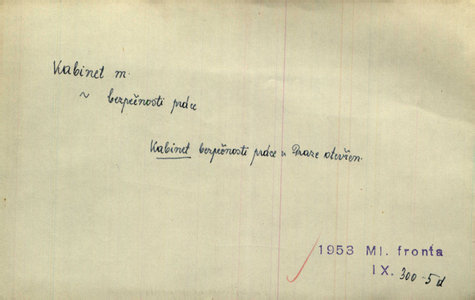 Kabinet m.
~ bezpečnosti práce
Kabinet bezpečnosti práce v Praze otevřen.
1953 Ml. fronta
IX. 300-5d